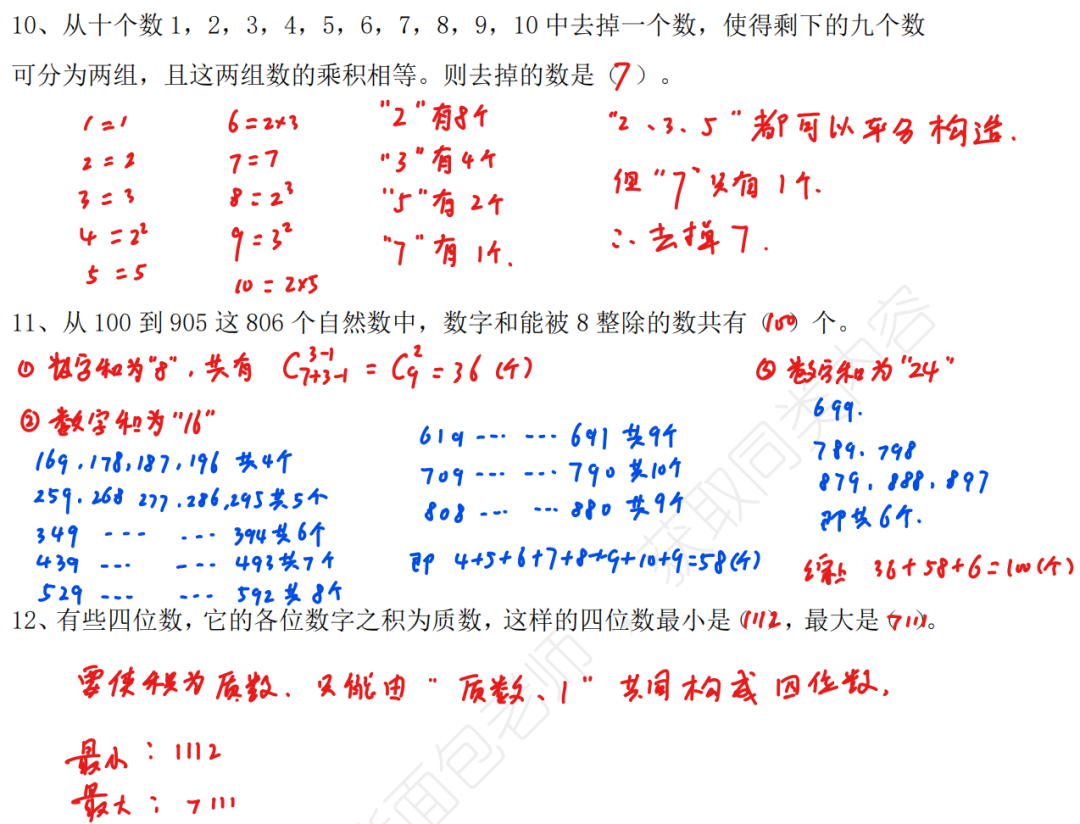 10、从十个数 1，2，3，4，5，6，7，8，9，10 中去掉一个数，使得剩下的九个数
可分为两组，且这两组数的乘积相等。则去掉的数是（7）。
1=1 6=2×3 "2"有8个 "2、3、5"都可以平分构造.
2=2 7=7 "3"有4个 但"7"只有1个.
3=3 8=2³ "5"有2个 ∴去掉7.
4=2² 9=3² "7"有1个.
5=5 10=2×5
11、从 100 到 905 这 806 个自然数中，数字和能被 8 整除的数共有（100）个。
① 数字和为"8"，共有 C_{7+3-1}^{3-1} = C_9^2 = 36 (个)
② 数字和为"16"
169，178，187，196 共4个
259，268 277，286，295共5个
349 ... ... 394共6个
439 ... ... 493共7个
529 ... ... 592共8个
619 ... ... 691 共9个
709 ... ... 790 共10个
808 ... ... 880 共9个
即 4+5+6+7+8+9+10+9=58(个)
③ 数字和为"24"
699.
789、798
879，888，897
即共6个.
综上 36+58+6=100(个)
12、有些四位数，它的各位数字之积为质数，这样的四位数最小是（1112，最大是（7111）。
要使积为质数、只能由"质数、1"共同构成四位数，
最小：1112
最大：7111
获取同类内容
面包老师